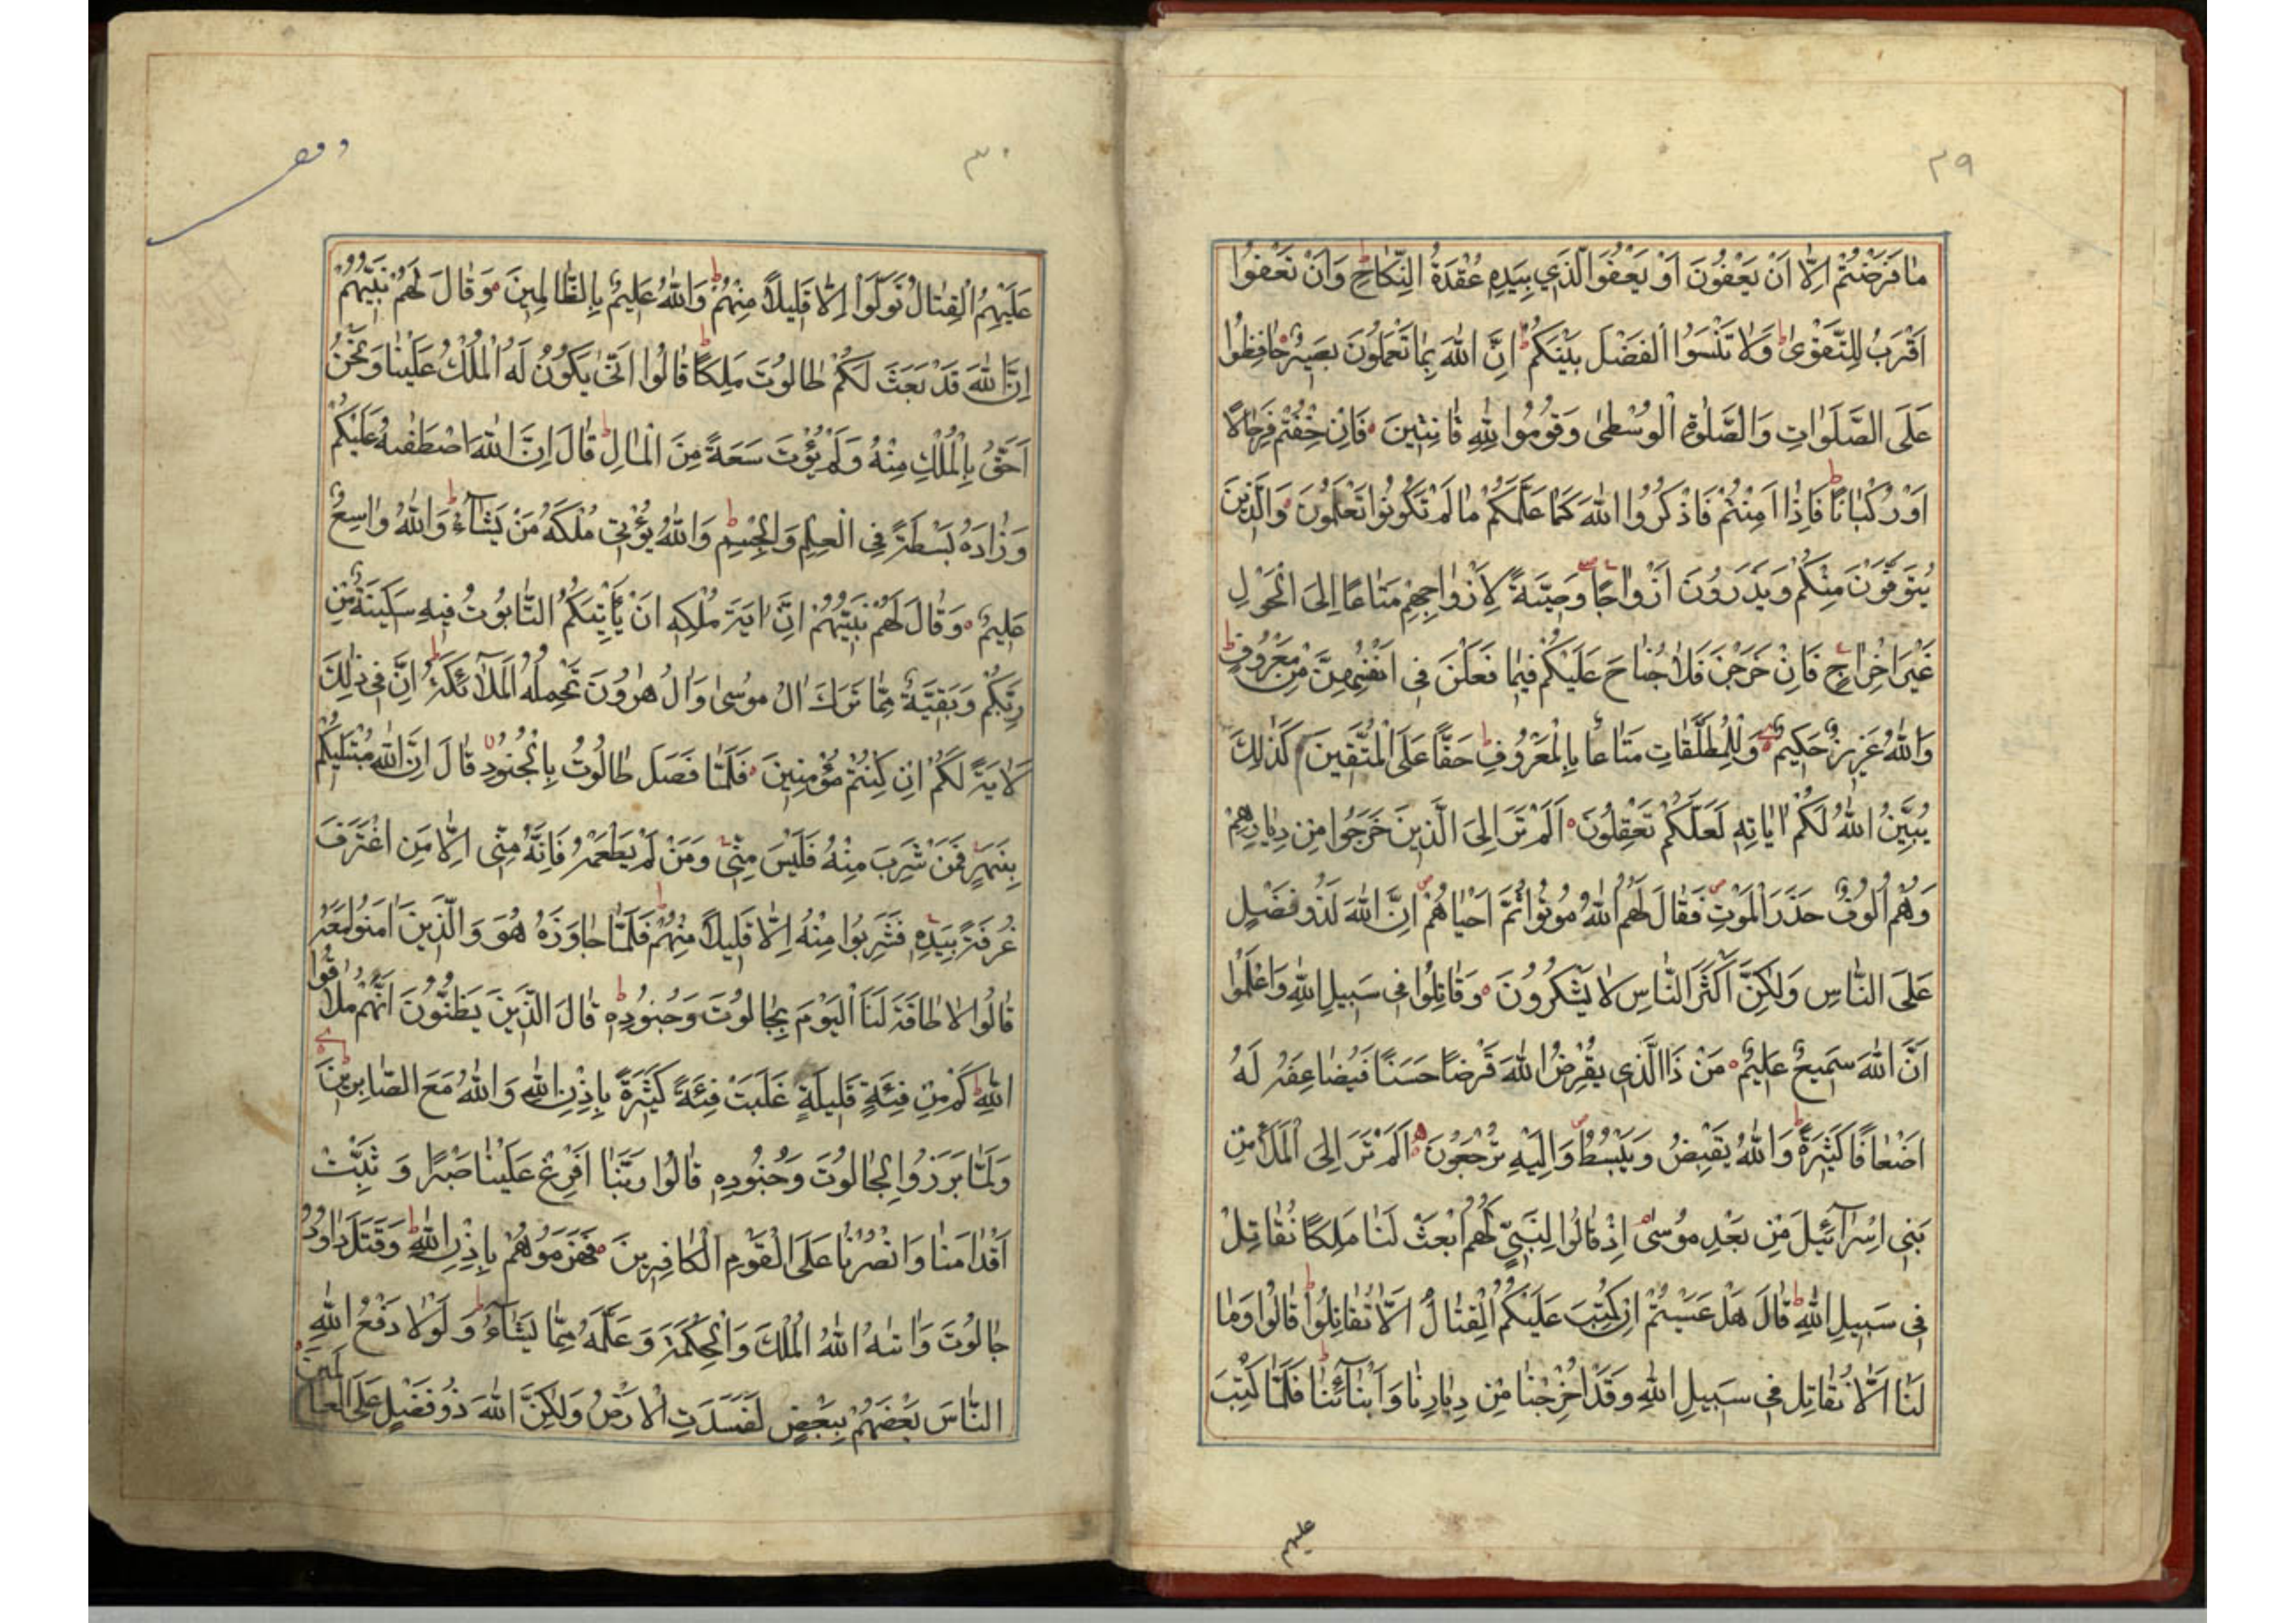 ٢٩
مٰا فَرَضْتُمْ اِلّٰا اَنْ يَعْفُونَ اَوْ يَعْفُوَا الَّذِي بِيَدِهِ عُقْدَةُ النِّكٰاحِ ط وَاَنْ تَعْفُوا
اَقْرَبُ لِلتَّقْوٰى ط وَلٰا تَنْسَوُا الْفَضْلَ بَيْنَكُمْ ط اِنَّ اللّٰهَ بِمٰا تَعْمَلُونَ بَصِيرٌ حٰافِظُوا
عَلَى الصَّلَوٰاتِ وَالصَّلٰوةِ الْوُسْطٰى وَقُومُوا لِلّٰهِ قٰانِتِينَ فَاِنْ خِفْتُمْ فَرِجٰالًا
اَوْ رُكْبٰانًا ط فَاِذٰا اَمِنْتُمْ فَاذْكُرُوا اللّٰهَ كَمٰا عَلَّمَكُمْ مٰا لَمْ تَكُونُوا تَعْلَمُونَ وَالَّذِينَ
يُتَوَفَّوْنَ مِنْكُمْ وَيَذَرُونَ اَزْوٰاجًا وَصِيَّةً لِاَزْوٰاجِهِمْ مَتٰاعًا اِلَى الْحَوْلِ
غَيْرَ اِخْرٰاجٍ فَاِنْ خَرَجْنَ فَلٰا جُنٰاحَ عَلَيْكُمْ فِيمٰا فَعَلْنَ فِى اَنْفُسِهِنَّ مِنْ مَعْرُوفٍ ط
وَاللّٰهُ عَزِيزٌ حَكِيمٌ وَلِلْمُطَلَّقٰاتِ مَتٰاعًا بِالْمَعْرُوفِ ط حَقًّا عَلَى الْمُتَّقِينَ كَذٰلِكَ
يُبَيِّنُ اللّٰهُ لَكُمْ اٰيٰاتِهِ لَعَلَّكُمْ تَعْقِلُونَ اَلَمْ تَرَ اِلَى الَّذِينَ خَرَجُوا مِنْ دِيٰارِهِمْ
وَهُمْ اُلُوفٌ حَذَرَ الْمَوْتِ فَقٰالَ لَهُمُ اللّٰهُ مُوتُوا ثُمَّ اَحْيٰاهُمْ اِنَّ اللّٰهَ لَذُو فَضْلٍ
عَلَى النّٰاسِ وَلٰكِنَّ اَكْثَرَ النّٰاسِ لٰا يَشْكُرُونَ وَقٰاتِلُوا فِى سَبِيلِ اللّٰهِ وَاعْلَمُوا
اَنَّ اللّٰهَ سَمِيعٌ عَلِيمٌ مَنْ ذَا الَّذِى يُقْرِضُ اللّٰهَ قَرْضًا حَسَنًا فَيُضٰاعِفَهُ لَهُ
اَضْعٰافًا كَثِيرَةً ط وَاللّٰهُ يَقْبِضُ وَيَبْسُطُ وَاِلَيْهِ تُرْجَعُونَ اَلَمْ تَرَ اِلَى الْمَلَأِ مِنْ
بَنِى اِسْرٰآئِيلَ مِنْ بَعْدِ مُوسٰى اِذْ قٰالُوا لِنَبِىٍّ لَهُمُ ابْعَثْ لَنٰا مَلِكًا نُقٰاتِلْ
فِى سَبِيلِ اللّٰهِ ط قٰالَ هَلْ عَسَيْتُمْ اِنْ كُتِبَ عَلَيْكُمُ الْقِتٰالُ اَلّٰا تُقٰاتِلُوا ط قٰالُوا وَمٰا
لَنٰا اَلّٰا نُقٰاتِلَ فِى سَبِيلِ اللّٰهِ وَقَدْ اُخْرِجْنٰا مِنْ دِيٰارِنٰا وَاَبْنٰآئِنٰا ط فَلَمّٰا كُتِبَ
عليهم
٣٠
عَلَيْهِمُ الْقِتٰالُ تَوَلَّوْا اِلّٰا قَلِيلًا مِنْهُمْ ط وَاللّٰهُ عَلِيمٌ بِالظّٰالِمِينَ وَقٰالَ لَهُمْ نَبِيُّهُمْ
اِنَّ اللّٰهَ قَدْ بَعَثَ لَكُمْ طٰالُوتَ مَلِكًا ط قٰالُوا اَنّٰى يَكُونُ لَهُ الْمُلْكُ عَلَيْنٰا وَنَحْنُ
اَحَقُّ بِالْمُلْكِ مِنْهُ وَلَمْ يُؤْتَ سَعَةً مِنَ الْمٰالِ ط قٰالَ اِنَّ اللّٰهَ اصْطَفٰيهُ عَلَيْكُمْ
وَزٰادَهُ بَسْطَةً فِى الْعِلْمِ وَالْجِسْمِ ط وَاللّٰهُ يُؤْتِى مُلْكَهُ مَنْ يَشٰآءُ ط وَاللّٰهُ وٰاسِعٌ
عَلِيمٌ وَقٰالَ لَهُمْ نَبِيُّهُمْ اِنَّ اٰيَةَ مُلْكِهِ اَنْ يَأْتِيَكُمُ التّٰابُوتُ فِيهِ سَكِينَةٌ مِنْ
رَبِّكُمْ وَبَقِيَّةٌ مِمّٰا تَرَكَ اٰلُ مُوسٰى وَاٰلُ هٰرُونَ تَحْمِلُهُ الْمَلٰآئِكَةُ ط اِنَّ فِى ذٰلِكَ
لَاٰيَةً لَكُمْ اِنْ كُنْتُمْ مُؤْمِنِينَ فَلَمّٰا فَصَلَ طٰالُوتُ بِالْجُنُودِ قٰالَ اِنَّ اللّٰهَ مُبْتَلِيكُمْ
بِنَهَرٍ فَمَنْ شَرِبَ مِنْهُ فَلَيْسَ مِنِّى وَمَنْ لَمْ يَطْعَمْهُ فَاِنَّهُ مِنِّى اِلّٰا مَنِ اغْتَرَفَ
غُرْفَةً بِيَدِهِ فَشَرِبُوا مِنْهُ اِلّٰا قَلِيلًا مِنْهُمْ ط فَلَمّٰا جٰاوَزَهُ هُوَ وَالَّذِينَ اٰمَنُوا مَعَهُ
قٰالُوا لٰا طٰاقَةَ لَنَا الْيَوْمَ بِجٰالُوتَ وَجُنُودِهِ ط قٰالَ الَّذِينَ يَظُنُّونَ اَنَّهُمْ مُلٰاقُوا
اللّٰهِ كَمْ مِنْ فِئَةٍ قَلِيلَةٍ غَلَبَتْ فِئَةً كَثِيرَةً بِاِذْنِ اللّٰهِ وَاللّٰهُ مَعَ الصّٰابِرِينَ
وَلَمّٰا بَرَزُوا لِجٰالُوتَ وَجُنُودِهِ قٰالُوا رَبَّنٰا اَفْرِغْ عَلَيْنٰا صَبْرًا وَ ثَبِّتْ
اَقْدٰامَنٰا وَانْصُرْنٰا عَلَى الْقَوْمِ الْكٰافِرِينَ فَهَزَمُوهُمْ بِاِذْنِ اللّٰهِ ط وَقَتَلَ دٰاوُدُ
جٰالُوتَ وَاٰتٰيهُ اللّٰهُ الْمُلْكَ وَالْحِكْمَةَ وَ عَلَّمَهُ مِمّٰا يَشٰآءُ ط وَ لَوْلٰا دَفْعُ اللّٰهِ
النّٰاسَ بَعْضَهُمْ بِبَعْضٍ لَفَسَدَتِ الْاَرْضُ وَلٰكِنَّ اللّٰهَ ذُو فَضْلٍ عَلَى الْعٰالَمِينَ